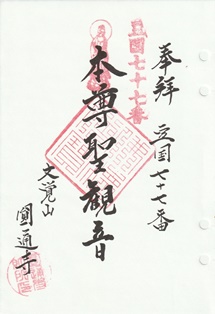 奉拝 立国七十七番
豆國七十七番
本尊聖観音
文覚山
圓通寺